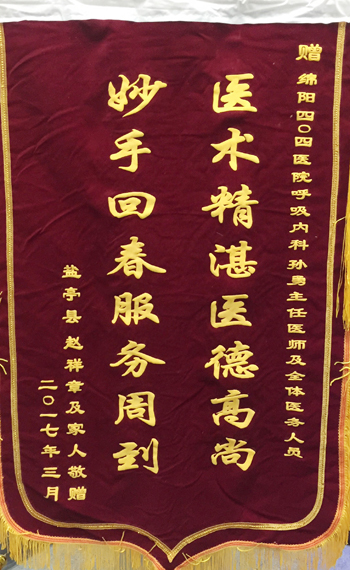 赠 绵阳四〇四医院呼吸内科 孙勇主任医师及全体医务人员
医术精湛医德高尚
妙手回春服务周到
盐亭县 赵祥章及家人敬赠
二〇一七年三月